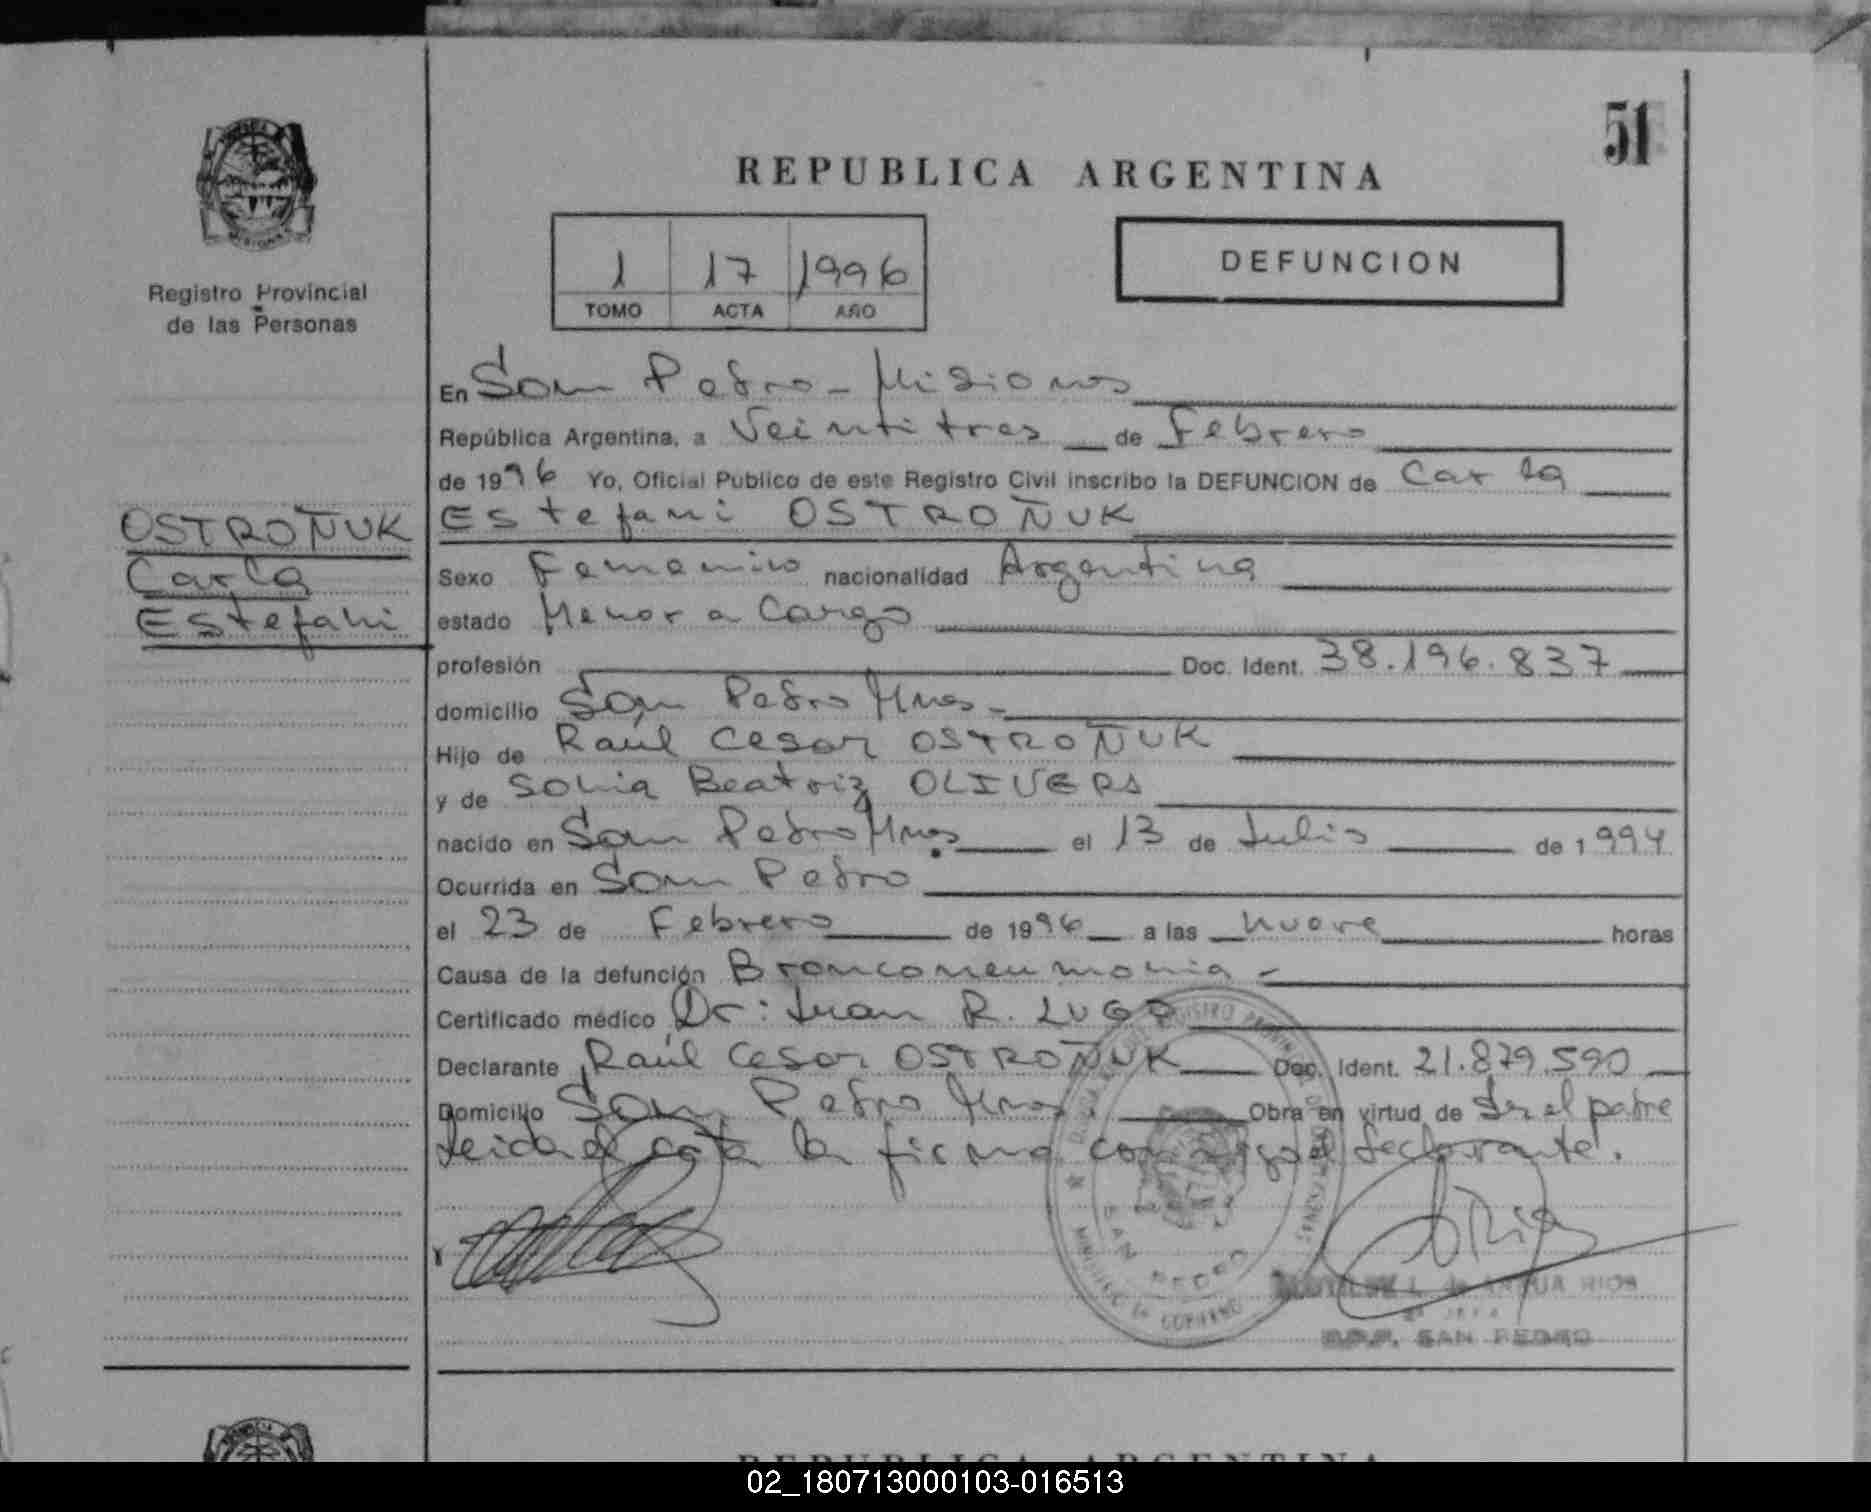 51
REPUBLICA ARGENTINA
Registro Provincial
de las Personas
1 17 1996
TOMO ACTA AÑO
DEFUNCION
En San Pedro - Misiones
República Argentina, a Veintitres de Febrero
de 1996 Yo, Oficial Publico de este Registro Civil inscribo la DEFUNCION de Carla
Estefani OSTROÑUK
OSTROÑUK
Carla
Estefani
Sexo Femenino nacionalidad Argentina
estado Menor a Cargo
profesión Doc. Ident. 38.196.837
domicilio San Pedro Mnes-
Hijo de Raúl Cesar OSTROÑUK
y de Sonia Beatriz OLIVERA
nacido en San Pedro Mnes el 13 de Julio de 1994
Ocurrida en San Pedro
el 23 de Febrero de 1996 a las nueve horas
Causa de la defunción Bronconeumonia -
Certificado médico Dr: Juan R. LUGO
Declarante Raúl Cesar OSTROÑUK Doc. Ident. 21.879.590
Domicilio San Pedro Mnes. Obra en virtud de Ser el padre
Leida el acta la firma conmigo el declarante.
SAN PEDRO
RIOS
SAN PEDRO
REPUBLICA ARGENTINA
02_180713000103-016513